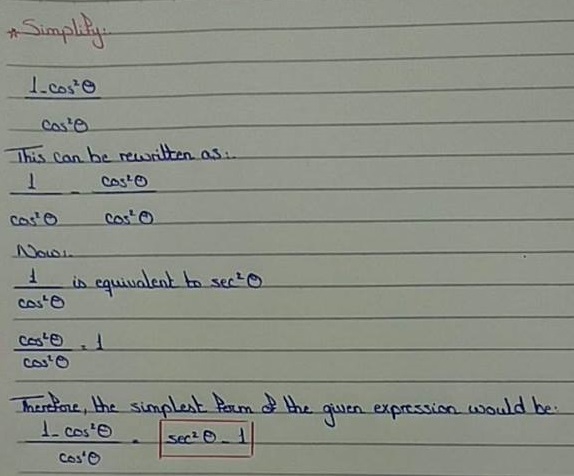 * Simplify:
1-cos²θ
cos²θ
This can be rewritten as:
1 - cos²θ
cos²θ cos²θ
Now:
1 is equivalent to sec²θ
cos²θ
cos²θ = 1
cos²θ
Therefore, the simplest form of the given expression would be:
1-cos²θ = sec²θ - 1
cos²θ